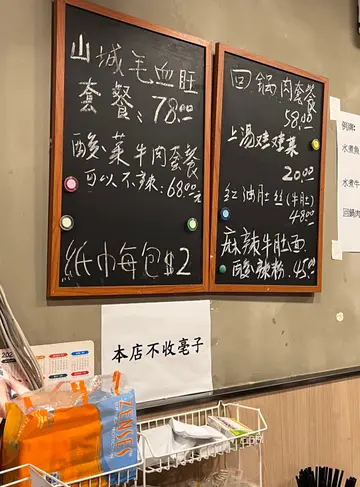 山城毛血旺
套餐:78.00
酸菜牛肉套餐
可以不辣:68.00元
紙巾每包$2
回鍋肉套餐
58.00
上湯娃娃菜
20.00
紅油肚丝(牛肚)
48.00
麻辣牛肚面
酸辣粉.45.00
例牌:
水煮魚
水煮牛
回鍋肉
本店不收毫子
ZENSES